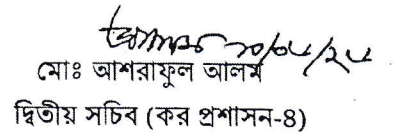 মোঃ আশরাফুল আলম
দ্বিতীয় সচিব (কর প্রশাসন-৪)